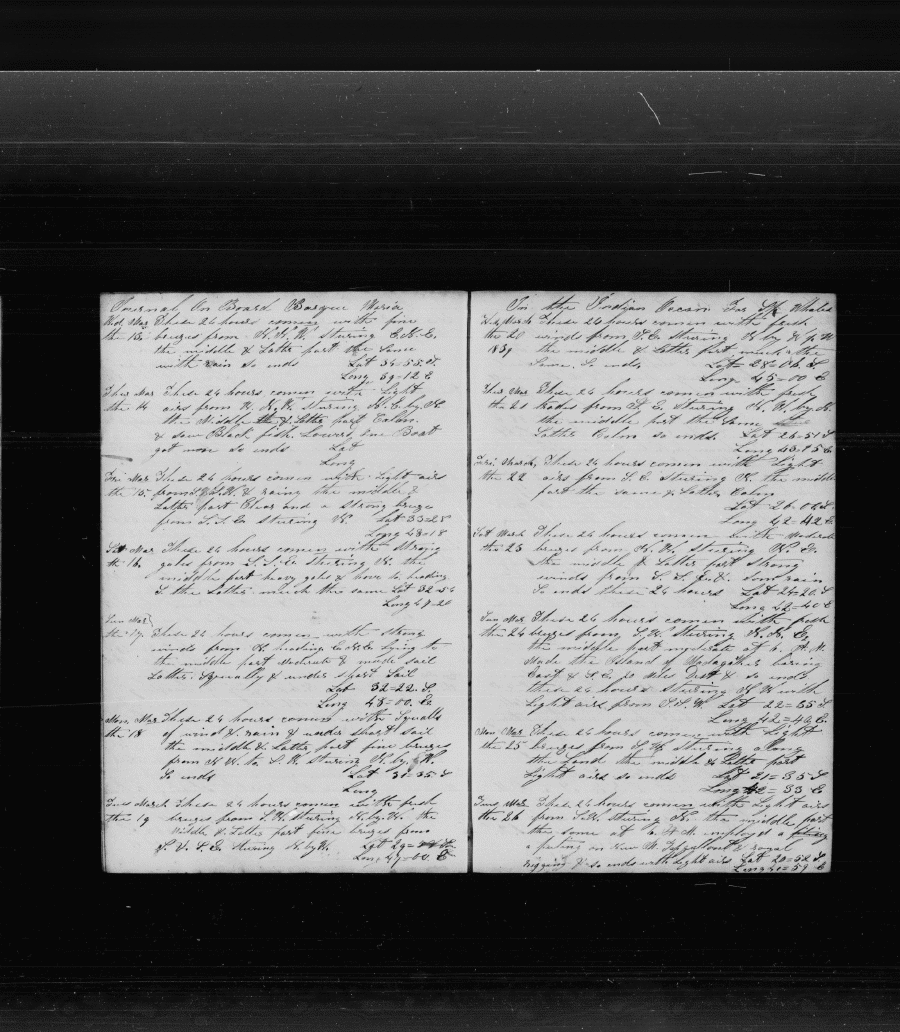 Journal On Board Barque Maria
Wed, Mar These 24 hours comen with fine
the 13 brezes from N. N. W. Sturing E.N.E.
the middle & Latter part the Same
with rain so ends Lat 34=55. S.
Long 59=12 E
Thus Mar These 24 hours comen with Light
the 14 airs from N. Sturing N. E. by N.
the Middle & Latter part Calm.
& saw Black fish. Lowerd one Boat
got none so ends Lat
Long
Fri Mar These 24 hours comen with Light airs
the 15 from & rainy the middle &
Latter part Clear and a strong breze
from S. S. E. Sturing N. Lat 33=28
Long 48=18
Sat Mar These 24 hours comen with Strong
the 16 gales from S. S. E. Sturing N. the
middle part heavy gales & hove to heading
the Latter much the same Lat 32=54
Long 47=26
Sun Mar
the 17 These 24 hours comen with strong
winds from heading lying to
the middle part Moderate & made sail
Latter. Squally & under short sail
Lat 32=22. S.
Long 48=00. E
Mon, Mar These 24 hours comen with Squalls
the 18 of wind & rain & under short sail
the middle & Latter part fine brezes
from N W. to S. W. Sturing N. by W.
So ends Lat 31=35 S
Long
Tues March These 24 hours comen with fresh
the 19 brezes from S. W. Sturing N. by W. the
Middle & Latter part fine brezes from
Sturing N. by W. Lat 29=
Long 47=00. E
In the Indian Ocean For Whales
Wed, March These 24 hours comen with fresh
the 20 winds from S. E. Sturing N by W
1839 the middle & Latter part much the
Same, So ends. Lat 28=06. S
Long 45=00 E
Thus, Mar These 24 hours comen with fresh
the 21 trades from S. E. Sturing N. by
the middle part the same
Latter Calm so ends. Lat 26=51 S
Long 43=15 E
Fri. March, These 24 hours comen with Light
the 22 airs from S. E Sturing N. the middle
part the same & Latter Calm
Lat 26=00 S
Long 42=42 E
Sat March These 24 hours comen with Moderate
the 23 brezes from N. W. Sturing
the middle & Latter part strong
winds from Som rain
So ends these 24 hours Lat 24=20. S
Long 42=40 E
Sun Mar These 24 hours comen with fresh
the 24 brezes from S. W. Sturing N. N. E,
the middle part moderate at 6. A. M.
Made the Island of Madagasker baring
East & S. E. 20 Miles Dist & so ends
these 24 hours sturing N W with
Light airs from S S W Lat 22=55 S
Long 42=40 E
Mon Mar These 24 hours comen with Light
the 25 brezes from S. W Sturing along
the land the middle & Latter part
Light airs so ends Lat 21=35 S
Long 42=33 E
Tues, Mar These 24 hours comen with Light airs
the 26 from Sturing N. the middle part
the same at 6 A M. employed a
a puting on New M. Topgallant & royal
rigging & so ends with light airs Lat 20=52 S
Long 41=59 E